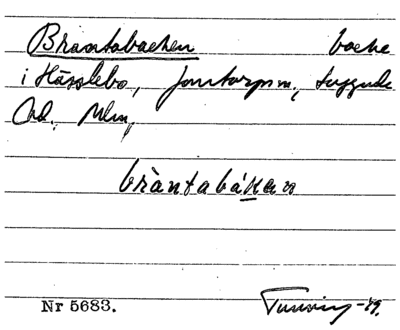 Brantabacken backe
i Hässlebo, Jonstorpsn., Luggude
hd. Mlm.
bràntabákan
Nr 5683.
-49.